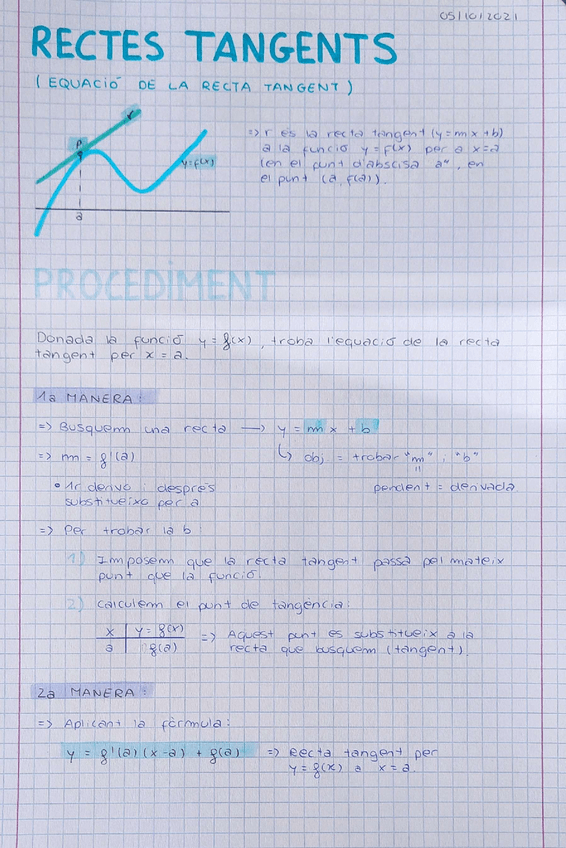 05/10/2021
RECTES TANGENTS
(EQUACIÓ DE LA RECTA TANGENT)
r
P
y=f(x)
a
=> r és la recta tangent (y=mx+b)
a la funció y=f(x) per a x=a
(en el punt d'abscisa "a", en
el punt (a, f(a)).
PROCEDIMENT
Donada la funció y = f(x), troba l'equació de la recta
tangent per x = a.
1a MANERA:
=> Busquem una recta → y = mx + b
=> m = f'(a)
↳ obj = trobar "m" i "b"
• 1r derivo i després
substitueixo per a
=
pendent = derivada
=> Per trobar la b:
1) Imposem que la recta tangent passa pel mateix
punt que la funció.
2) Calculem el punt de tangència:
x | y = f(x)
a | f(a)
=> Aquest punt es substitueix a la
recta que busquem (tangent).
2a MANERA:
=> Aplicant la fórmula:
y = f'(a)(x-a) + f(a)
=> Recta tangent per
y = f(x) a x = a.